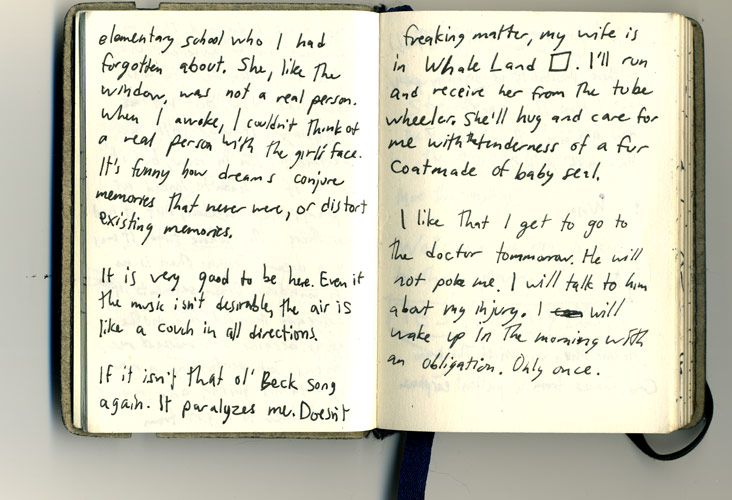 elementary school who I had
forgotten about. She, like the
window, was not a real person.
When I awoke, I couldn't think of
a real person with the girl's face.
It's funny how dreams conjure
memories that never were, or distort
existing memories.
It is very good to be here. Even if
the music isn't desirable, the air is
like a couch in all directions.
If it isn't that ol' Beck song
again. It paralyzes me. Doesn't
freaking matter, my wife is
in Whale Land □. I'll run
and receive her from the tube
wheeler. She'll hug and care for
me with the tenderness of a fur
coat made of baby seal.
I like that I get to go to
the doctor tommorrow. He will
not poke me. I will talk to him
about my injury. I will
wake up in the morning with
an obligation. Only once.